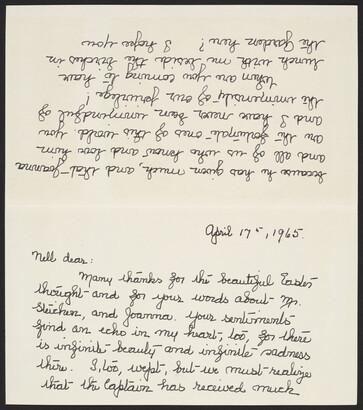 April 17th, 1965.
Nell dear:
Many thanks for the beautiful Easter
thought and for your words about Mr.
Steichen, and Joanna. Your sentiments
find an echo in my heart, too, for there
is infinite beauty and infinite sadness
there. I, too, wept, but we must realize
that the Captain has received much
because he has given much, and that Joanna
and all of us who know and love him
are the fortunate ones of this world
and I have never been unmindful of
the immensity of our privilege!
When are you coming to have
lunch with me beside the birches in
the garden here? I hope you